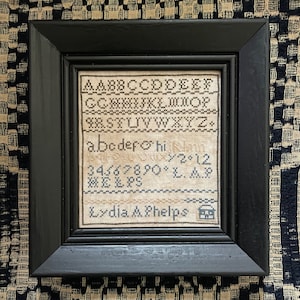 AABBCCDDEEF
GGHHIIJKLMNOP
QRSTUVWXYZ.
abcdefg hi
yz012
34567890 L.A.P
HELPS
Lydia A Phelps